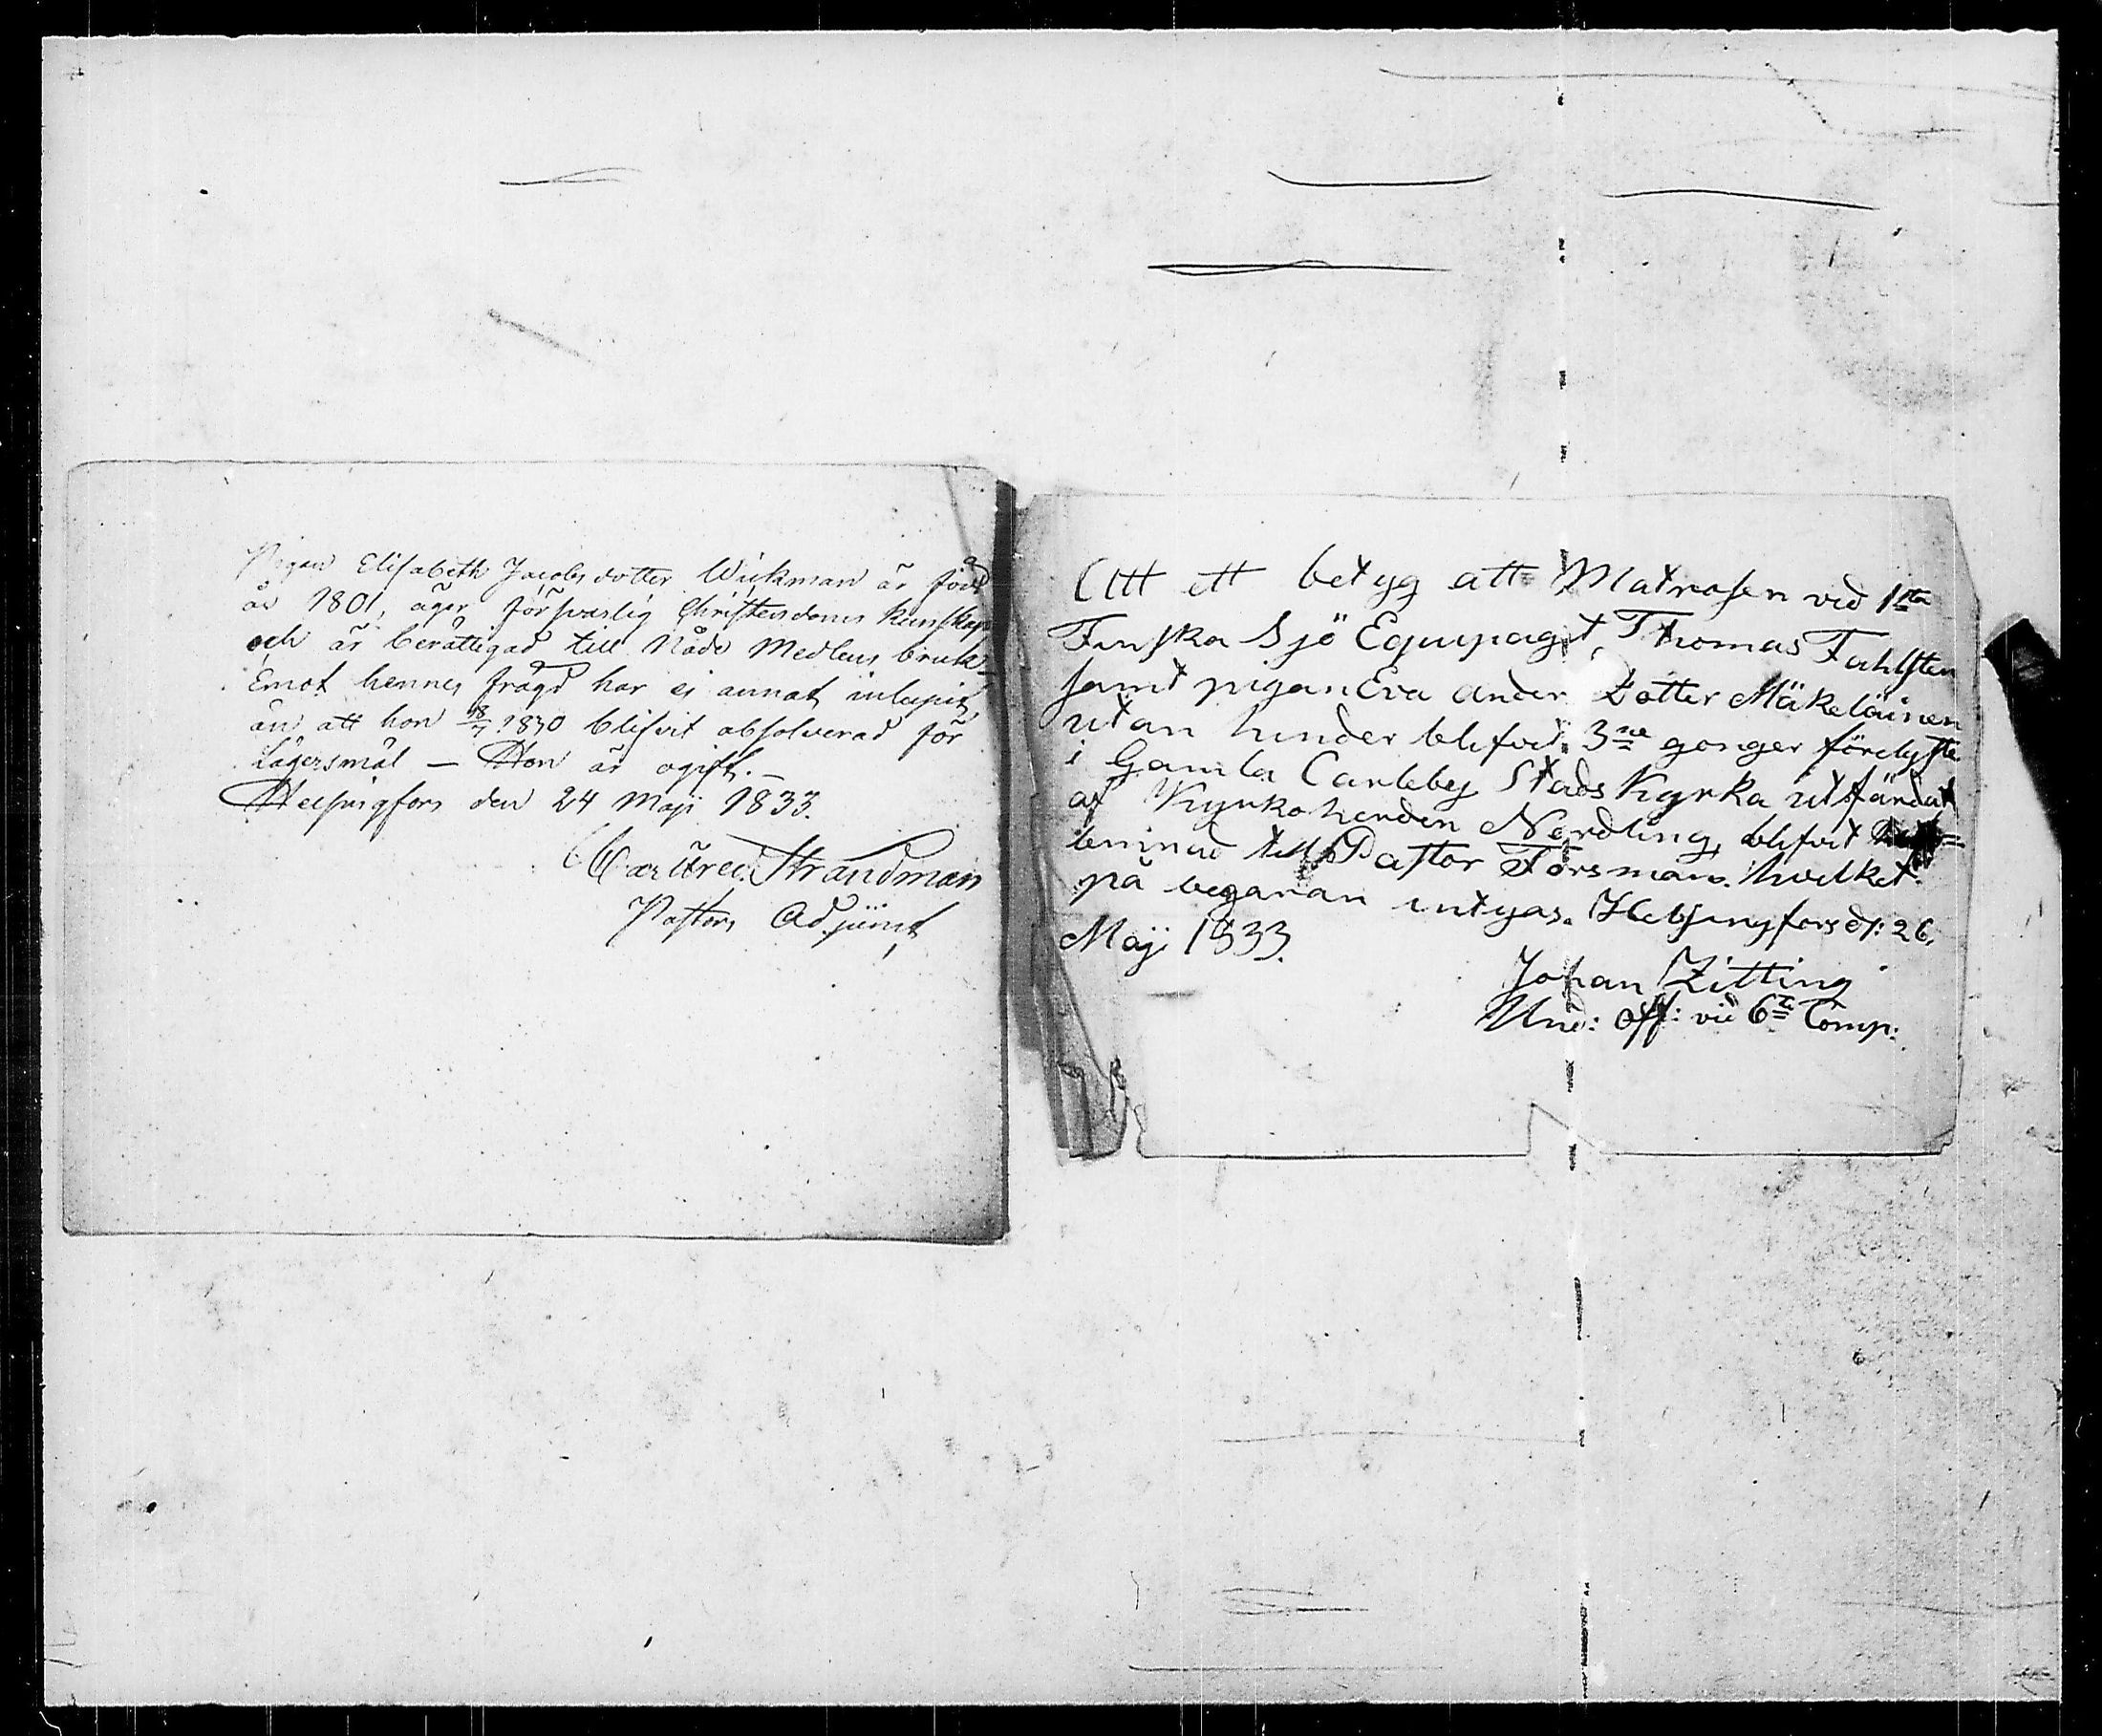 Pigan Elisabeth Jacobsdotter Wickman är född
år 1801, äger försvarlig Christendoms kunskap
och är berättigad till Nåde Medlens bruk
Emot hennes frägd har ej annat inlupit
än att hon 18/7 1830 blifvit absolverad för
Lägersmål — Hon är ogift. —
Helsingfors den 24 Maji 1833.
Strandman
Pastors Adjunct
Att ett betyg att Matrosen vid 1sta
Finska Sjö Equipaget, Thomas Fahlsten
samt pigan Eva Anders Dotter Mäkeläinen
utan hinder blifvit 3ne gonger förelyste
i Gamla Carleby Stads Kyrka utfärdat
af Kyrkoherden Nordling, blifvit
lemnad till Pastor Forsman. hvilket
på begäran intygas. Helsingfors d: 26.
Maji 1833.
Johan Zitting
Und: Off: vid 6te Comp: